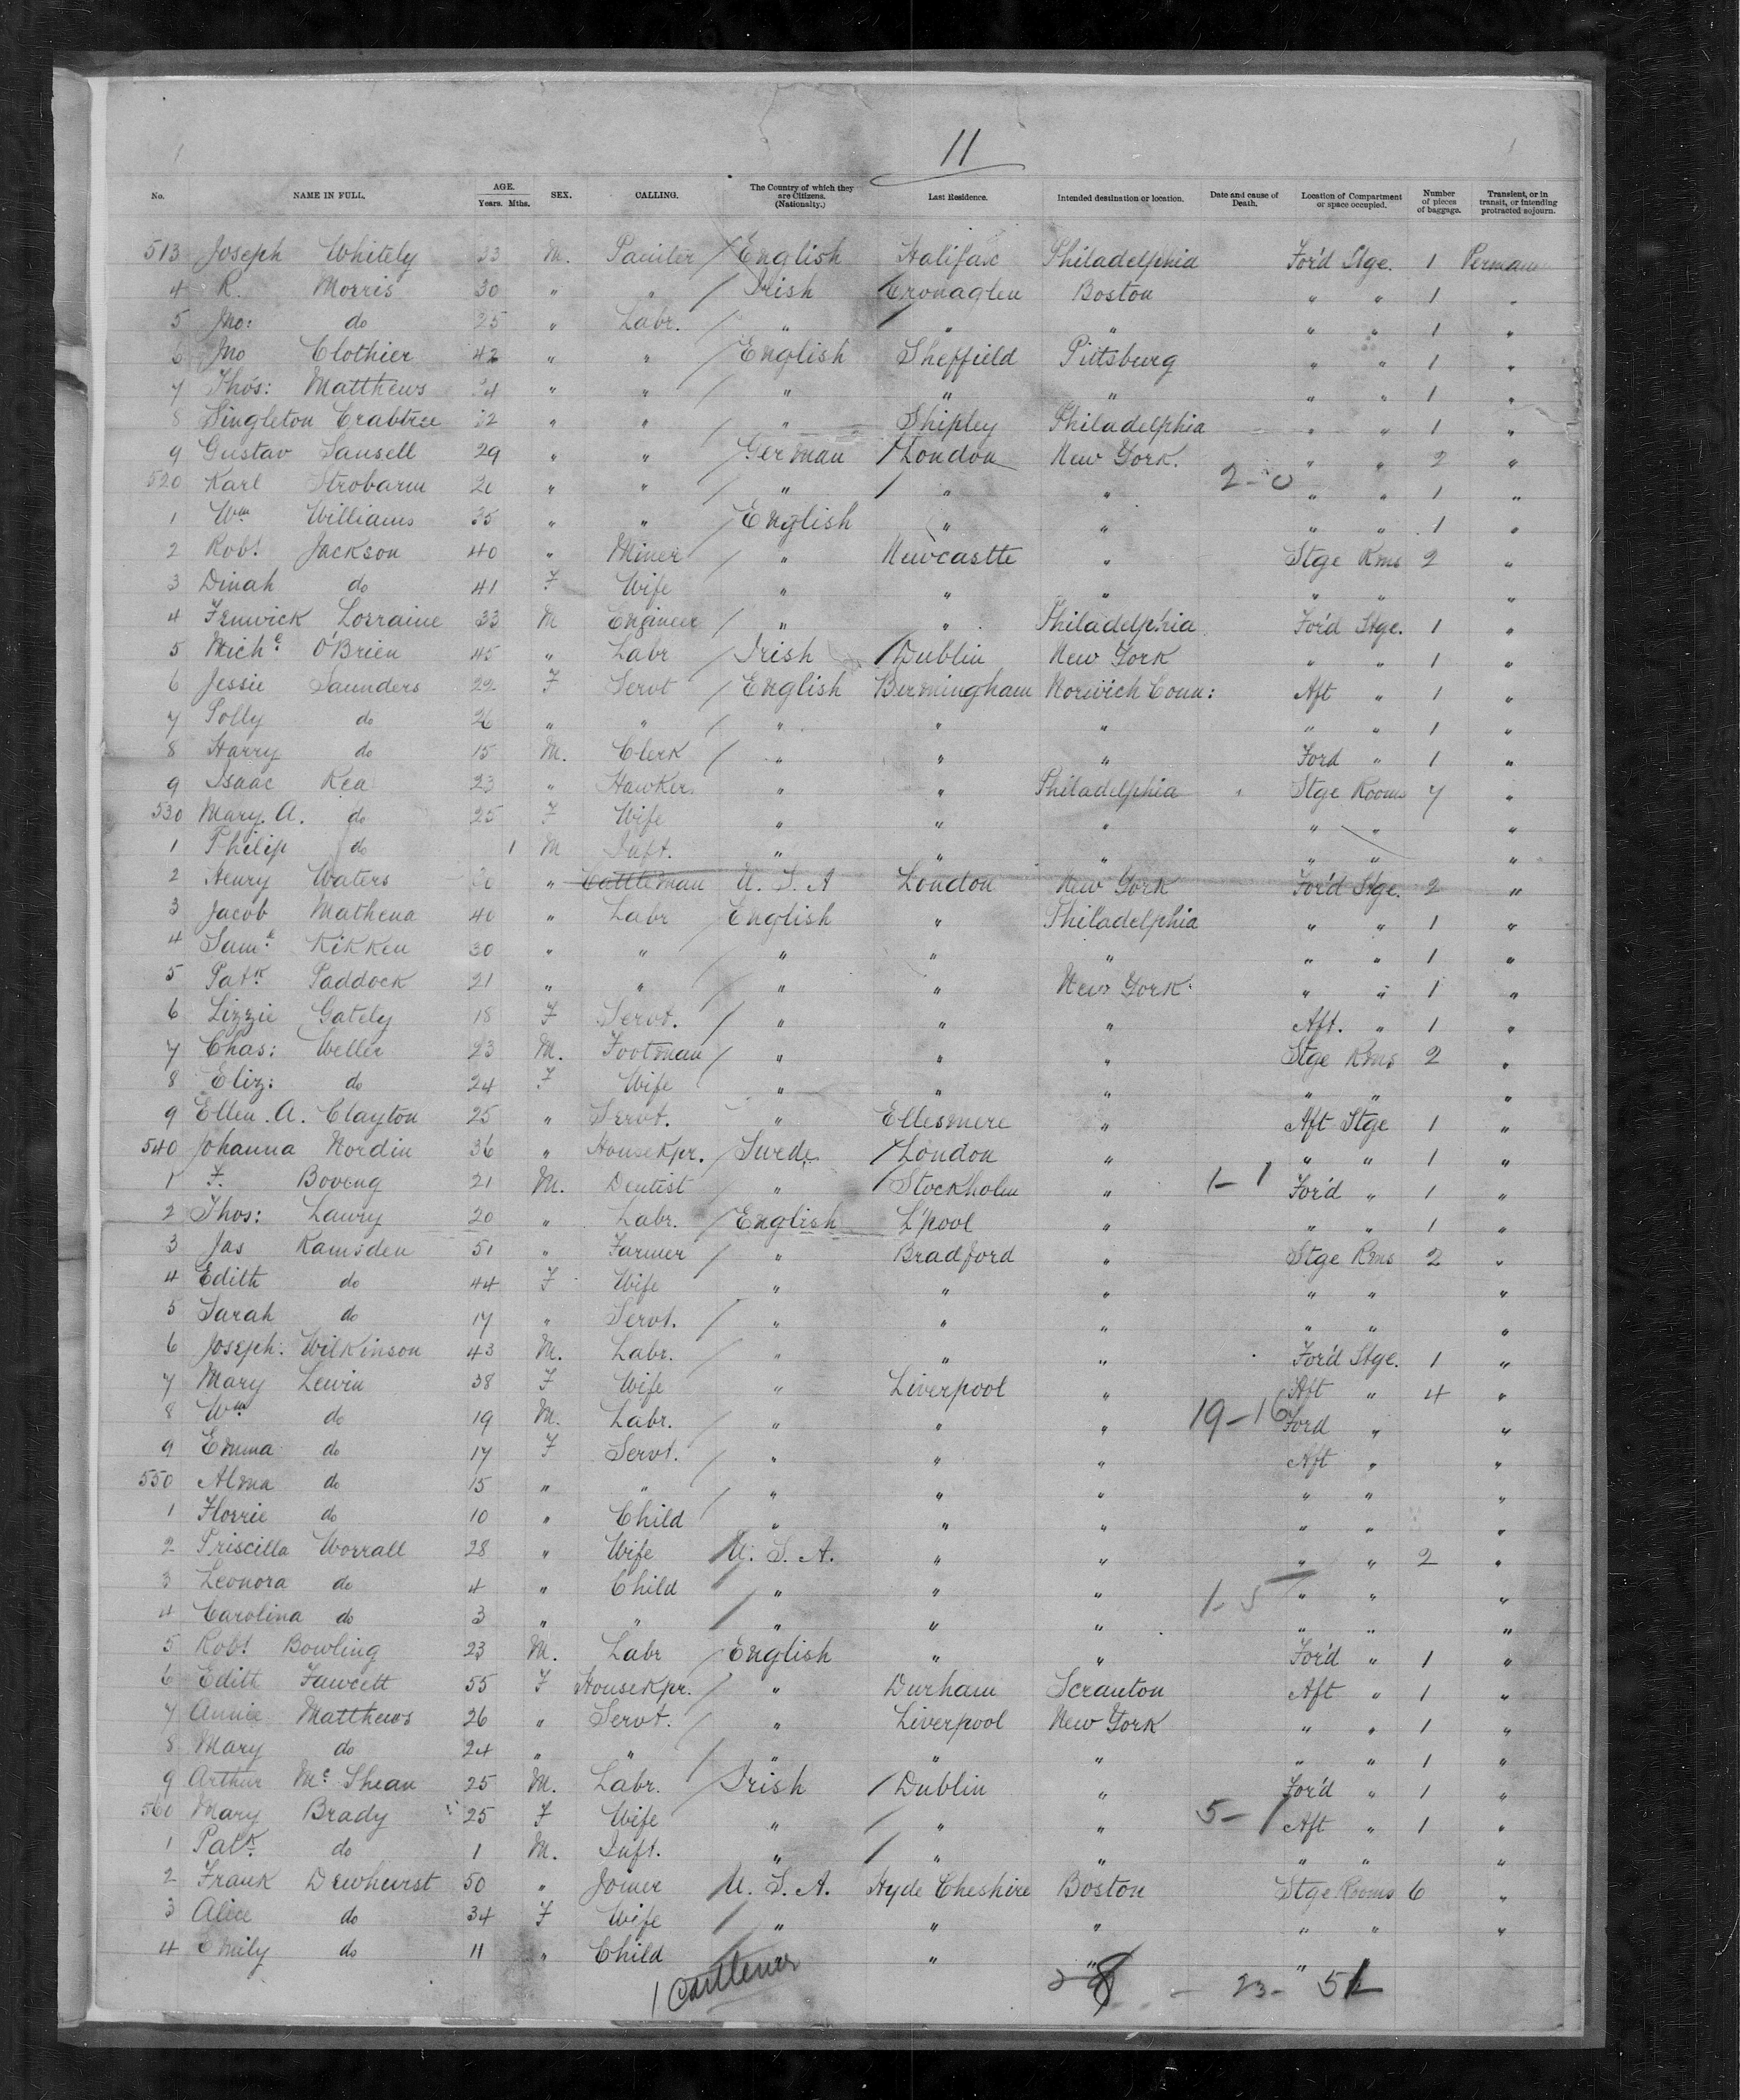 11
No. NAME IN FULL. AGE. Years. Mths. SEX. CALLING. The Country of which they are Citizens. (Nationality.) Last Residence. Intended destination or location. Date and cause of Death. Location of Compartment or space occupied. Number of pieces of baggage. Transient, or in transit, or intending protracted sojourn.
513 Joseph Whitely 33 M. Painter English Halifax Philadelphia For'd Stge. 1
4 R. Morris 30 " " Irish Cronaglen Boston " " 1 "
5 Jno: do 25 " Labr. " " " " " 1 "
6 Jno Clothier 42 " " English Sheffield Pittsburg " " 1 "
7 Thos: Matthews " " " " " " " 1 "
8 Singleton Crabtree 32 " " " Shipley Philadelphia " " 1 "
9 Gustav Sansell 29 " " German London New York. " " 2 "
520 Karl Strobarm " " " " " 2-0 " " 1 "
1 Wm Williams 35 " " English " " " " 1 "
2 Robt. Jackson 40 " Miner " Newcastle " Stge Rms 2 "
3 Dinah do 41 F Wife " " " " " "
4 Fenwick Lorraine 33 M Engineer " " Philadelphia For'd Stge. 1 "
5 Michl O'Brien 45 " Labr Irish Dublin New York " " 1 "
6 Jessie Saunders 22 F Servt English Birmingham Norwich Conn: Aft " 1 "
7 Polly do 26 " " " " " " " 1 "
8 Harry do 15 M. Clerk " " " Ford " 1 "
9 Isaac Rea 23 " Hawker " " Philadelphia Stge Rooms 7 "
530 Mary. A. do 25 F Wife " " " " " "
1 Philip do 1 M Inft. " " " " " "
2 Henry Waters 30 " Cattleman U. S. A London New York For'd Stge. 2 "
3 Jacob Mathena 40 " Labr English " Philadelphia " " 1 "
4 Saml Kikken 30 " " " " " " " 1 "
5 Patk Paddock 21 " " " " New York " " 1 "
6 Lizzie Gately 18 F Servt. " " " Aft. " 1 "
7 Chas: Weller 23 M. Footman " " " Stge Rms 2 "
8 Eliz: do 24 F Wife " " " " " "
9 Ellen. A. Clayton 25 " Servt. " Ellesmere " Aft Stge 1 "
540 Johanna Nordin 36 " Housekpr. Swede London " " " 1 "
1 F. Boveng 21 M. Dentist " Stockholm " 1-1 For'd " 1 "
2 Thos: Lawry 20 " Labr. English L'pool " " " 1 "
3 Jas Ramsden 51 " Farmer " Bradford " Stge Rms 2 "
4 Edith do 44 F Wife " " " " " "
5 Sarah do 17 " Servt. " " " " " "
6 Joseph: Wilkinson 43 M. Labr. " " " For'd Stge. 1 "
7 Mary Lewin 38 F Wife " Liverpool " Aft " 4 "
8 Wm do 19 M. Labr. " " " 19-16 Ford " "
9 Emma do 17 F Servt. " " " Aft " "
550 Alma do 15 " " " " " " " "
1 Florrie do 10 " Child " " " " " "
2 Priscilla Worrall 28 " Wife U. S. A. " " " " 2 "
3 Leonora do 4 " Child " " " 1-5 " " "
4 Carolina do 3 " " " " " " " "
5 Robt Bowling 23 M. Labr English " " For'd " 1 "
6 Edith Fawcett 55 F Housekpr. " Durham Scranton Aft " 1 "
7 Annie Matthews 26 " Servt. " Liverpool New York " " 1 "
8 Mary do 24 " " " " " " " 1 "
9 Arthur Mc Shean 25 M. Labr. Irish Dublin " For'd " 1 "
560 Mary Brady 25 F Wife " " " 5-1 Aft " 1 "
1 Patk do 1 M. Inft. " " " " " "
2 Frank Dewhurst 50 " Joiner U. S. A. Hyde Cheshire Boston Stge Rooms 6 "
3 Alice do 34 F Wife " " " " " "
4 Emily do 11 " Child " " "
1 23-